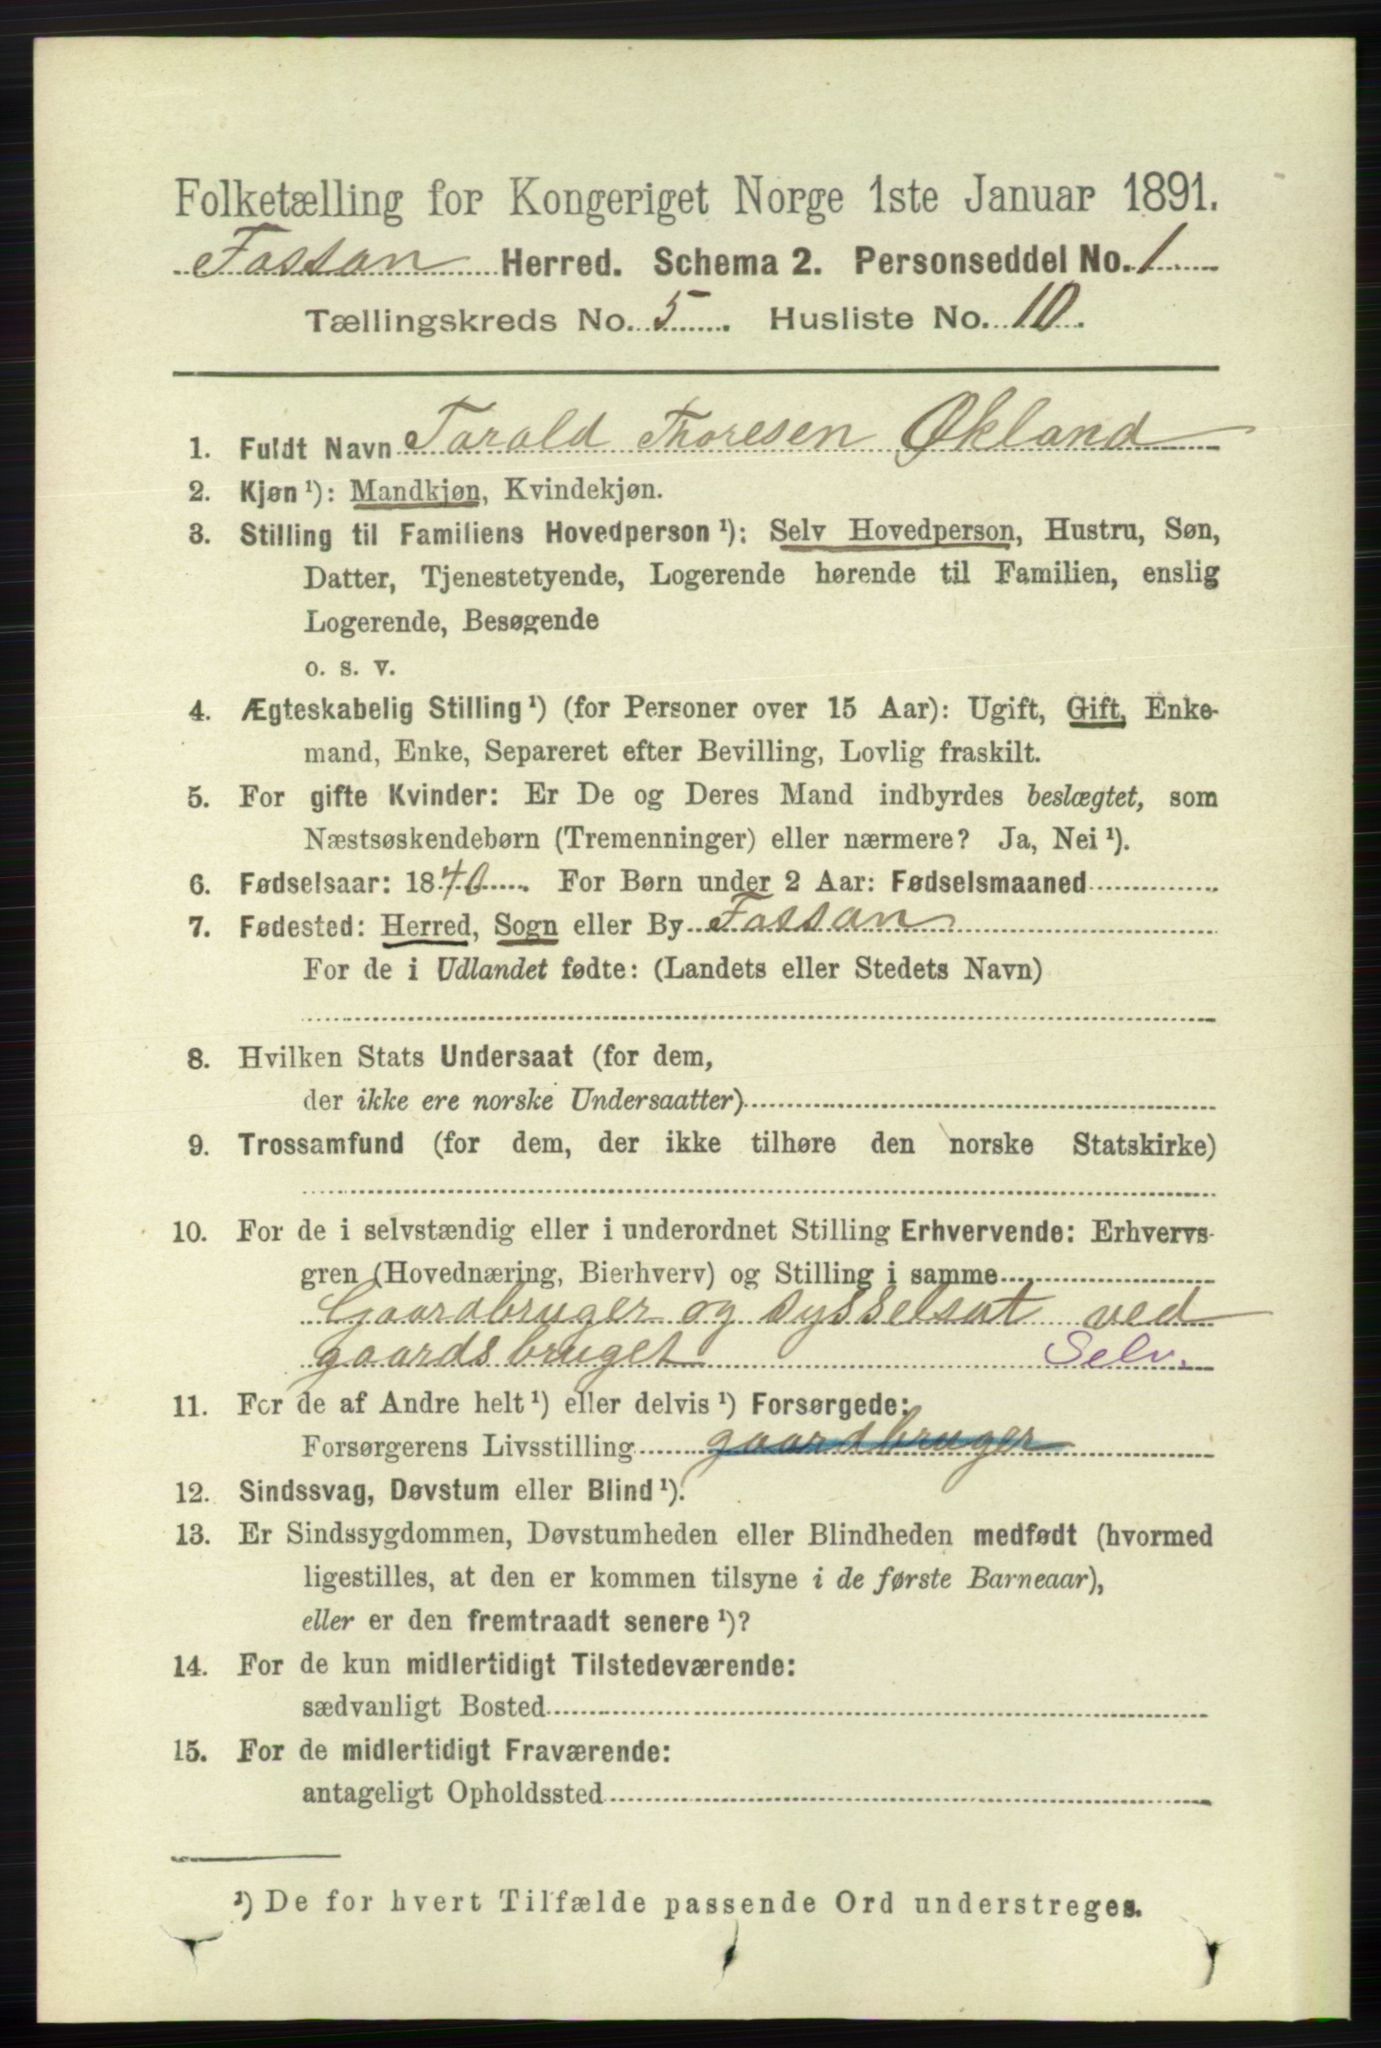 Folketælling for Kongeriget Norge 1ste Januar 1891.
Fossan Herred. Schema 2. Personseddel No. 1
Tællingskreds No. 5. Husliste No. 10.
1. Fuldt Navn Torald Thoresen Økland
2. Kjøn ¹): Mandkjøn, Kvindekjøn.
3. Stilling til Familiens Hovedperson ¹): Selv Hovedperson, Hustru, Søn,
Datter, Tjenestetyende, Logerende hørende til Familien, enslig
Logerende, Besøgende
o. s. v.
4. Ægteskabelig Stilling ¹) (for Personer over 15 Aar): Ugift, Gift, Enke-
mand, Enke, Separeret efter Bevilling, Lovlig fraskilt.
5. For gifte Kvinder: Er De og Deres Mand indbyrdes beslægtet, som
Næstsøskendebørn (Tremenninger) eller nærmere? Ja, Nei ¹).
6. Fødselsaar: 1840. For Børn under 2 Aar: Fødselsmaaned
7. Fødested: Herred, Sogn eller By Fossan
For de i Udlandet fødte: (Landets eller Stedets Navn)
8. Hvilken Stats Undersaat (for dem,
der ikke ere norske Undersaatter)
9. Trossamfund (for dem, der ikke tilhøre den norske Statskirke)
10. For de i selvstændig eller i underordnet Stilling Erhvervende: Erhvervs-
gren (Hovednæring, Bierhverv) og Stilling i samme
Gaardbruger og sysselsat ved
gaardsbruget Selv.
11. For de af Andre helt ¹) eller delvis ¹) Forsørgede:
Forsørgerens Livsstilling gaardbruger
12. Sindssvag, Døvstum eller Blind ¹).
13. Er Sindssygdommen, Døvstumheden eller Blindheden medfødt (hvormed
ligestilles, at den er kommen tilsyne i de første Barneaar),
eller er den fremtraadt senere ¹)?
14. For de kun midlertidigt Tilstedeværende:
sædvanligt Bosted
15. For de midlertidigt Fraværende:
antageligt Opholdssted
¹) De for hvert Tilfælde passende Ord understreges.